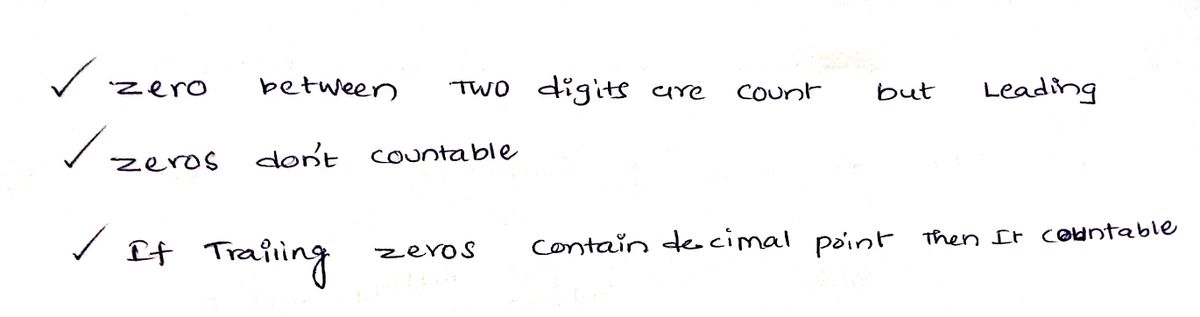 ✓ zero between Two digits are count but Leading
✓ zeros don't countable
✓ If Trailing zeros contain decimal point Then It countable